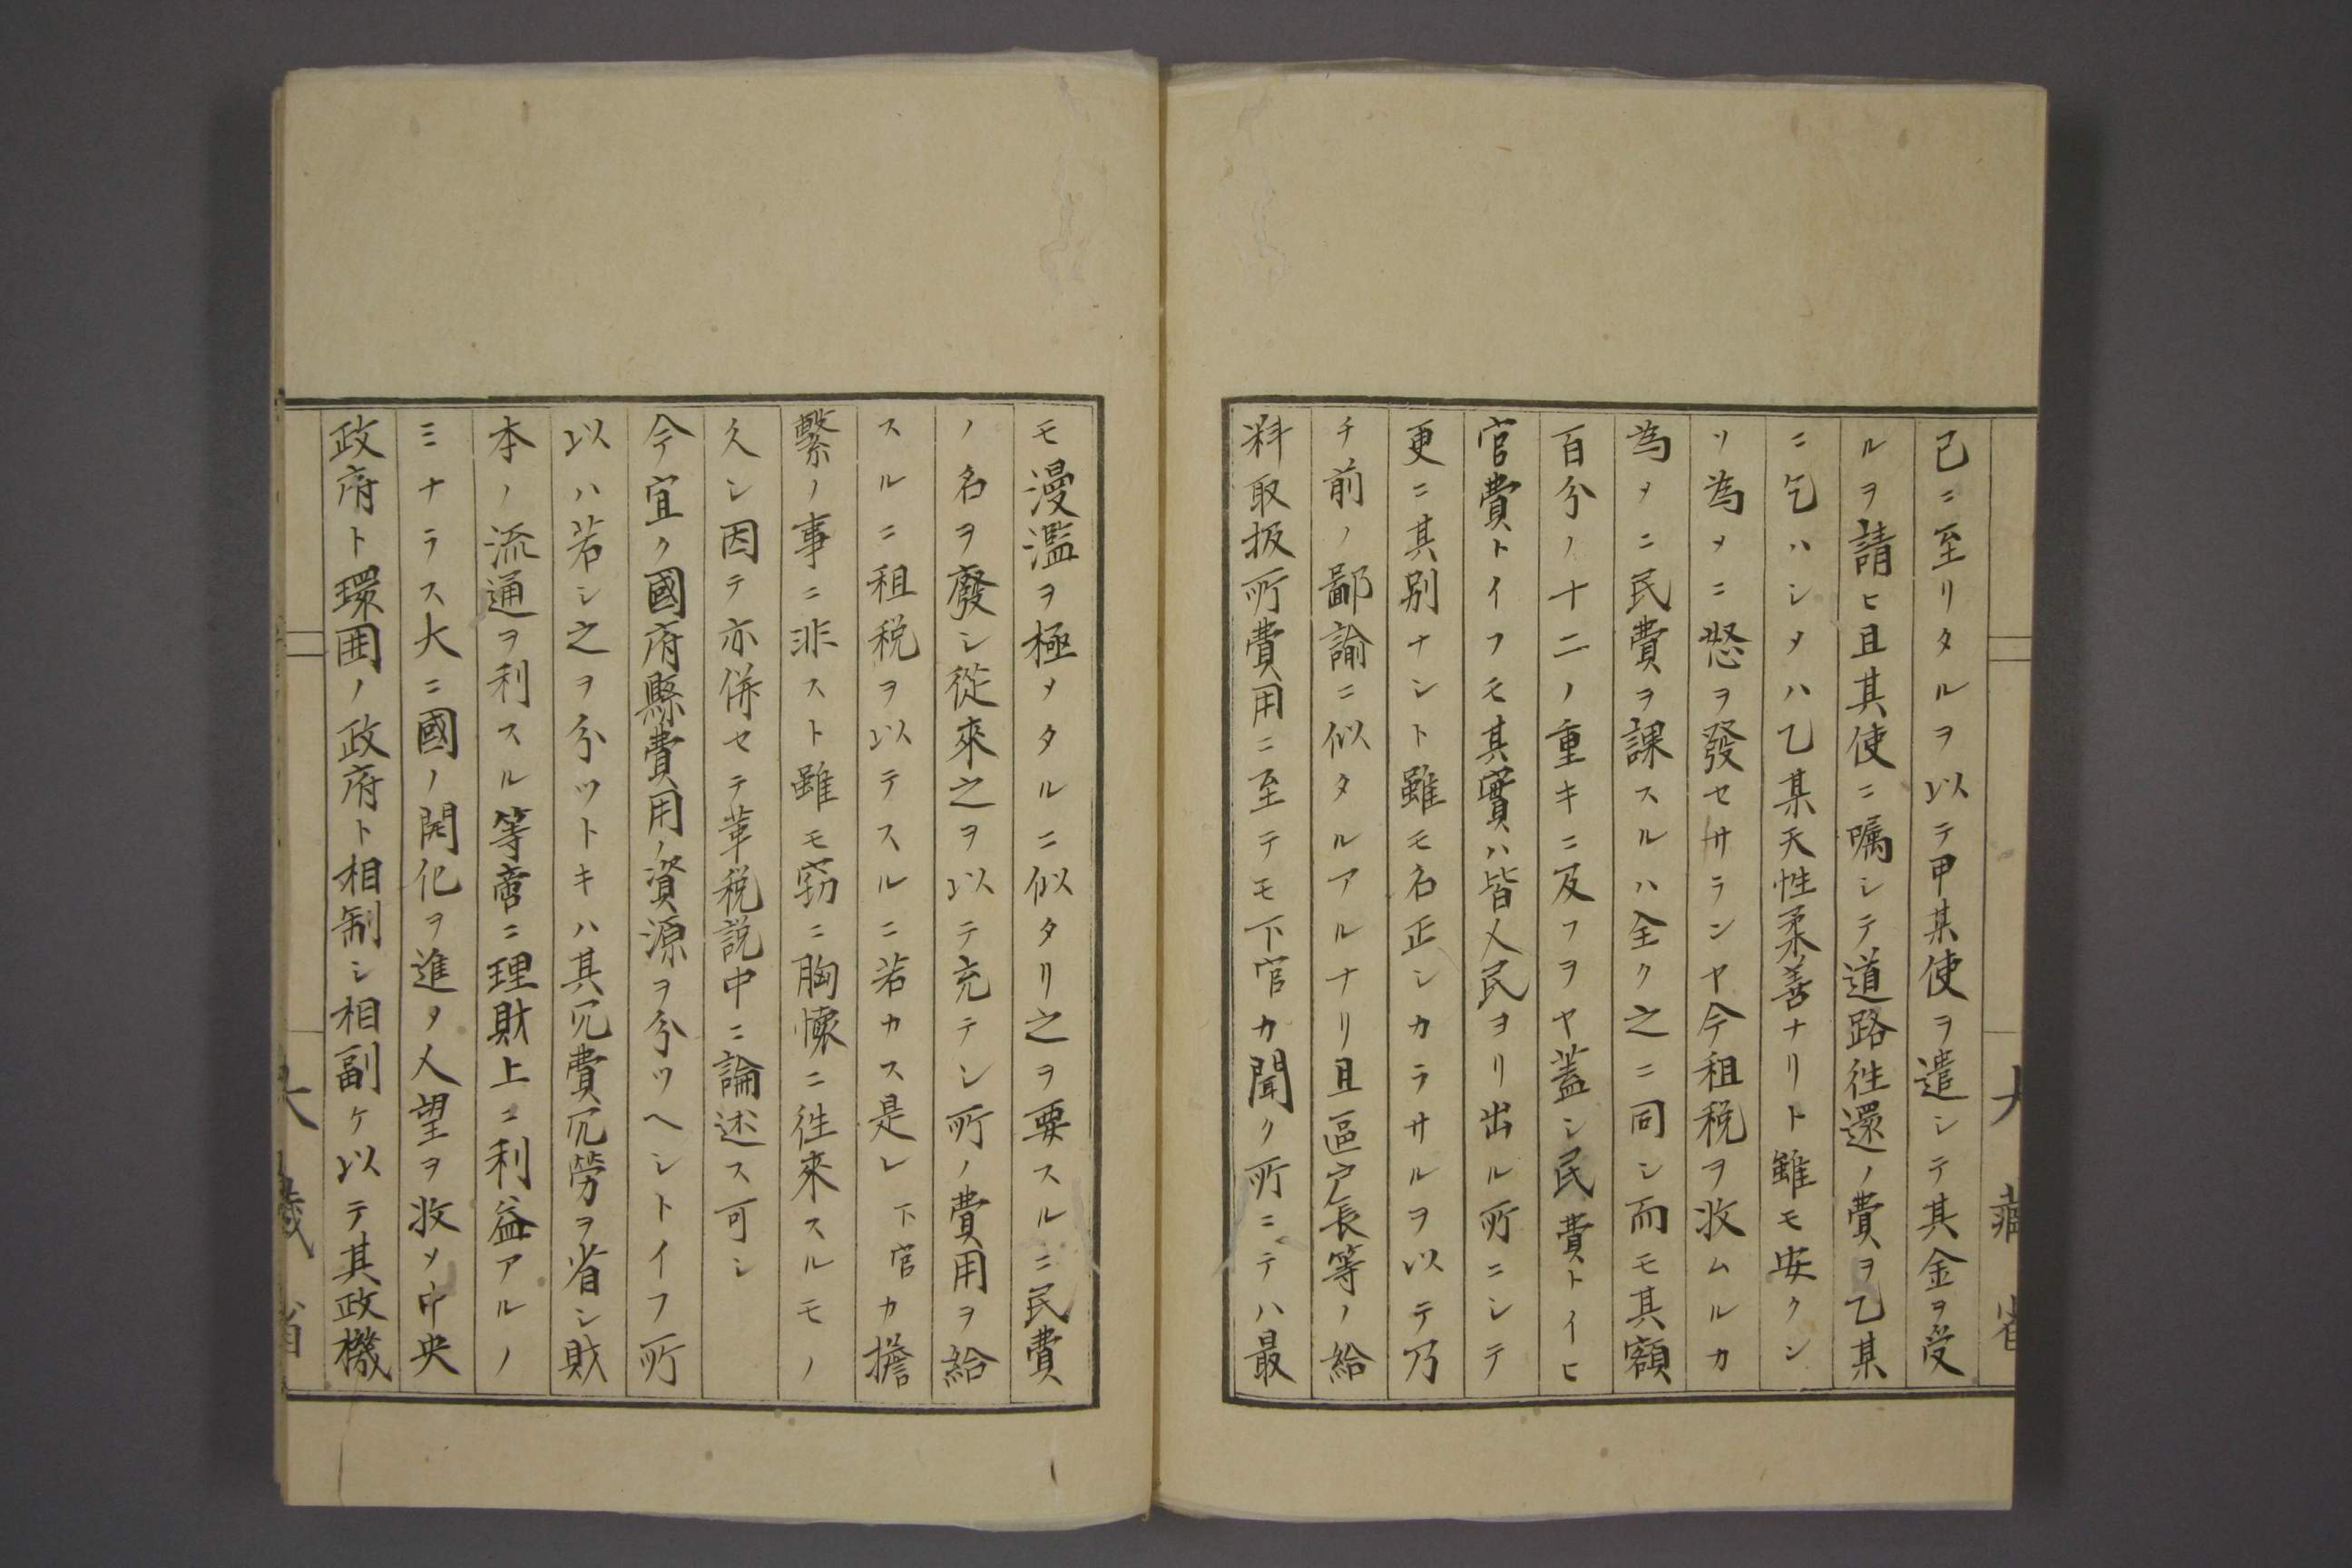 已ニ至リタルヲ以テ甲某使ヲ遣シテ其金ヲ受
ルヲ請ヒ且其使ニ嘱シテ道路徃還ノ費ヲ乙某
ニ乞ハシメハ乙某天性柔善ナリト雖モ安クン
ソ為メニ怒ヲ發セサランヤ今租税ヲ收ムルカ
為メニ民費ヲ課スルハ全ク之ニ同シ而モ其額
百分ノ十二ノ重キニ及フヲヤ蓋シ民費トイヒ
官費トイフモ其實ハ皆人民ヨリ出ル所ニシテ
更ニ其別ナシト雖モ名正シカラサルヲ以テ乃
チ前ノ鄙諭ニ似タルアルナリ且區戸長等ノ給
料取扱所費用ニ至テモ下官カ聞ク所ニテハ最
大藏省
モ漫濫ヲ極メタルニ似タリ之ヲ要スルニ民費
ノ名ヲ廢シ從來之ヲ以テ充テシ所ノ費用ヲ給
スルニ租税ヲ以テスルニ若カス是レ下官カ擔
繋ノ事ニ非スト雖モ窃ニ胸懐ニ徃來スルモノ
久シ因テ亦併セテ革税説中ニ論述ス可シ
今宜ク國府縣費用ノ資源ヲ分ツヘシトイフ所
以ハ若シ之ヲ分ツトキハ其冗費冗勞ヲ省シ財
本ノ流通ヲ利スル等啻ニ理財上ニ利益アルノ
ミナラス大ニ國ノ開化ヲ進メ人望ヲ收メ中央
政府ト環囲ノ政府ト相制シ相副ケ以テ其政機
大藏省